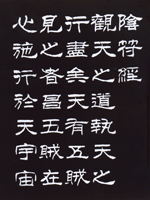 陰符經
觀天之道執天之
行盡矣天有五賊
見之者昌五賊在
心施行於天宇宙